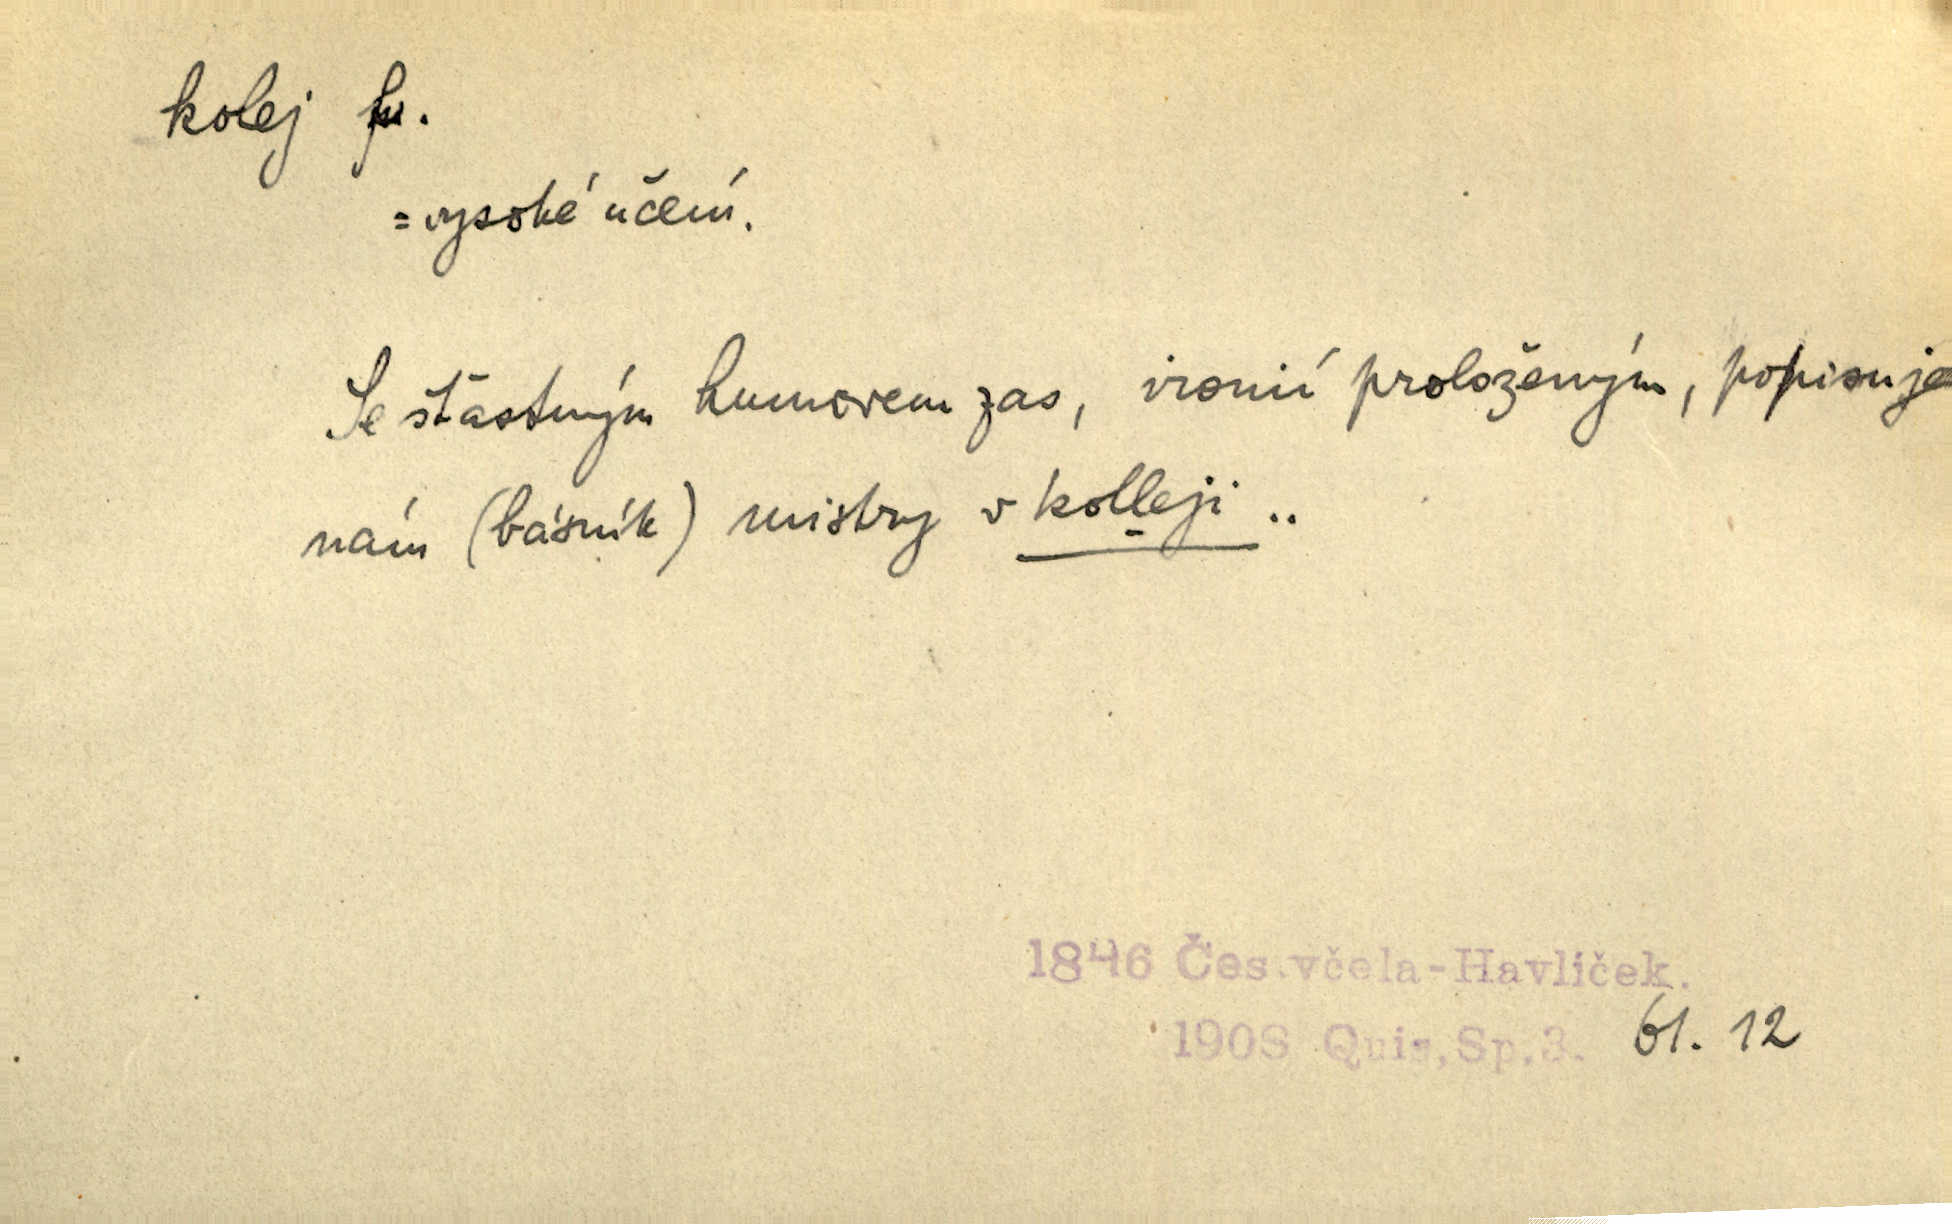 kolej f.
= vysoké učení.
Se šťastným humorem zas, ironií proloženým, popisuje
nám (básník) mistry v kolleji ..
1846 Čes.včela-Havlíček.
1908 Quis, Sp.3. 61. 12